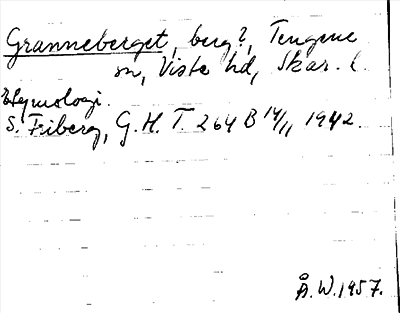 Granneberget, berg?, Tengene
sn, Viste hd, Skar. l.
Etymologi.
S. Friberg, G. H. T. 264 B 14/11 1942.
Å. W. 1957.